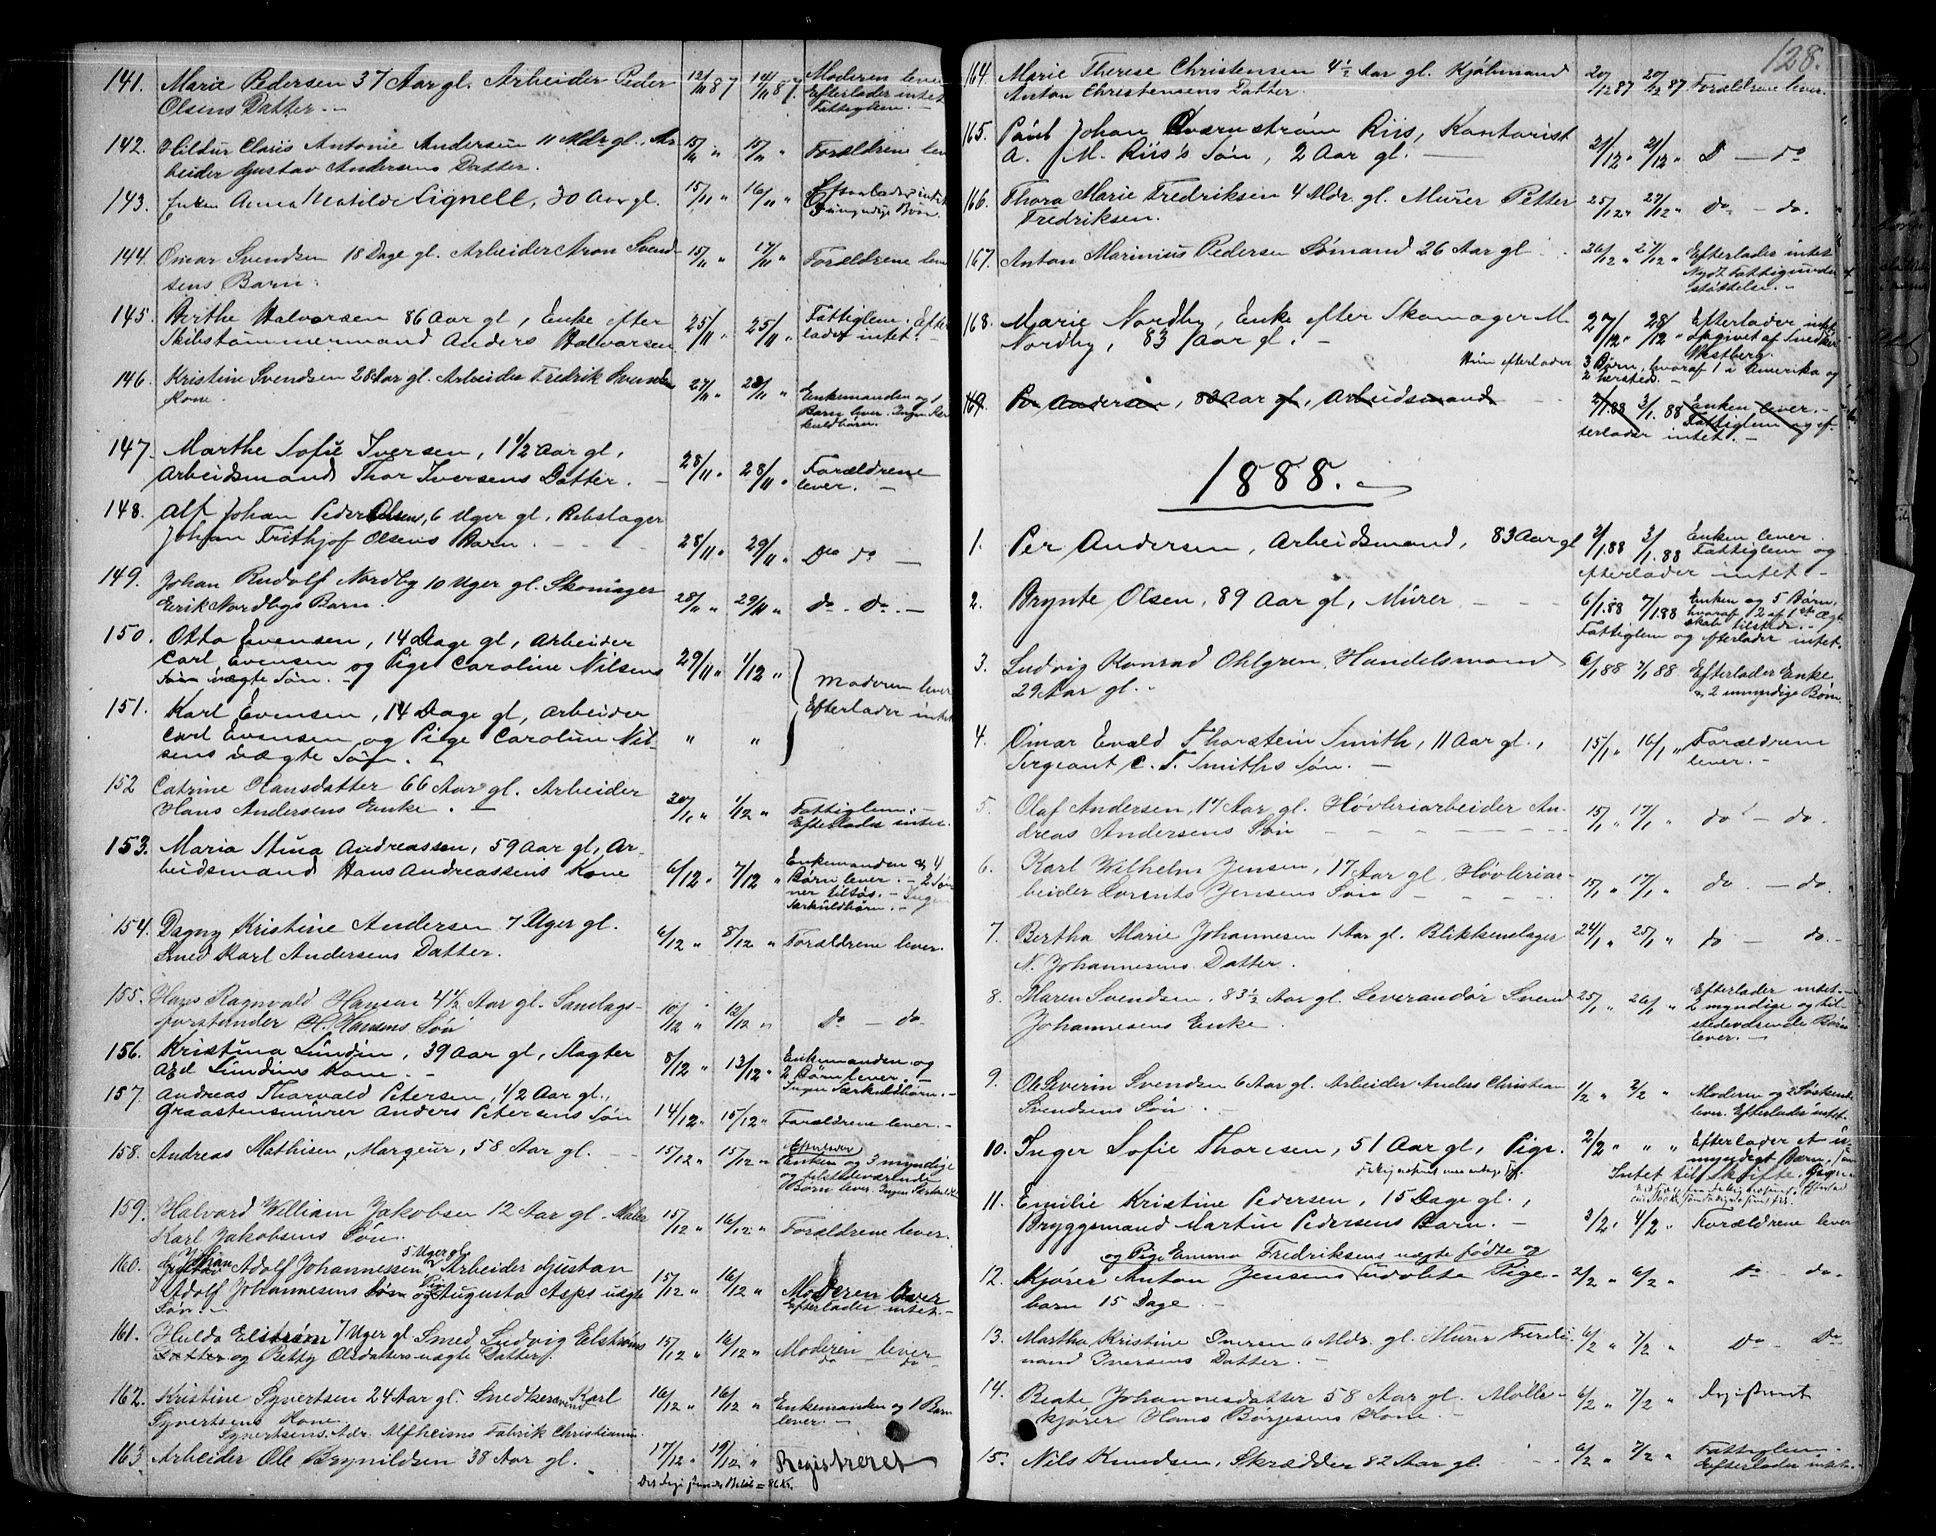 141. Marie Pedersen 37 Aar gl. Arbeider Peder 12/11 87 14/11 87. Moderen lever
Olsens Datter. — Efterlader intet
Fattiglem. —
142. Hildur Claus Antonie Andersen 11 Mdr gl. Ar- 15/11 " 15/11 " Forældrene lever
beider Gustav Andersens Datter.
143. Enken Anna Matilde Lignell, 30 Aar gl. 15/11 " 16/11 " Efterlader intet
umyndige Børn.
144. Omar Svendsen 18 Dage gl. Arbeider Aron Svend- 15/11 " 17/11 " Forældrene lever
sens Barn.
145. Berthe Halvorsen 86 Aar gl, Enke efter 25/11 " 25/11 " Fattiglem. Efter-
Skibstømmermand Anders Halvorsen lader intet. —
146. Kristine Svendsen 28 Aar gl. Arbeider Fredrik Svendsens 27/11 " 28/11 " Enkemanden og 1
Kone. Barn lever. Ingen Sær-
kuldbørn.
147. Marthe Sofie Iversen, 1 1/2 Aar gl, 28/11 " 28/11 " Forældrene
Arbeidsmand Thor Iversens Datter. — lever. —
148. Alf Johan Peder Olsen, 6 Uger gl, Rebslager
Johan Frithjof Olsens Barn. 28/11 " 29/11 " Do do —
149. Johan Rudolf Nordby 10 Uger gl. Skomager
Eirik Nordbys Barn. 28/11 " 29/11 " do. Do. —
150. Otto Evensen, 14 Dage gl, Arbeider
Carl Evensen og Pige Caroline Nilsens 29/11 " 1/12 " Moderen lever
Søn uægte Søn. —
151. Karl Evensen, 14 Dage gl, Arbeider Efterlader intet
Carl Evensen og Pige Caroline Nil- " "
sens uægte Søn. —
152 Catrine Hansdatter 66 Aar gl. Arbeider
Hans Andersens Enke. — 30/11 " 1/12 " Fattiglem. —
Efterlader intet.
153. Maria Stina Andreassen, 59 Aar gl, Ar-
beidsmand Hans Andreassens Kone 6/12 " 7/12 " Enkemanden & 4
Børn lever. — 2 Søn-
ner tilsøs. — Ingen
Særkuldbørn. —
154. Dagny Kristine Andersen 7 Uger gl.
Smed Karl Andersens Datter. 6/12 " 8/12 " Forældrene lever.
155. Hans Ragnvald Hansen 4 1/2 Aar gl. Samlags-
forstander H. Hansens Søn 10/12 " 12/12 " Do — do
156. Kristina Lundin, 39 Aar gl, Slagter
Axel Lundins Kone. — 8/12 " 13/12 " Enkemanden og
2 Børn lever. —
Ingen Særkuldbørn. —
157. Andreas Thorvald Petersen, 1/2 Aar gl.,
Graastensmurer Anders Petersens Søn 14/12 " 15/12 " Forældrene lever. —
158. Andreas Mathisen, Margeur, 58 Aar gl. 15/12 " 15/12 " Efterlader
Enken og 3 myndige
og tilstedeværende
Børn lever. Ingen Særkuldbørn
159. Halvard William Jakobsen 12 Aar gl. Maler 15/12 " 16/12 " Forældrene lever.
Karl Jakobsens Søn.
160. Gustav Johan Adolf Johannessen 5 Uger gl. Arbeider Gustav
Adolf Johannesens Søn og Pige Augusta Asps uægte 15/12 " 16/12 " Moderen lever
Søn. — Efterlader intet. —
161. Hulda Elstrøm 7 Uger gl Smed Ludvig Elstrøms
Datter og Betty Olsdatters uægte Datter. 15/12 " 16/12 " Moderen lever
do do
162. Kristine Syvertsen 24 Aar gl. Snedkersvend Karl 16/12 " 16/12 " Enkemanden og 1 Barn
Syvertsens Kone. lever. —
Syvertsens Adr. Alfheims Fabrik Christiania.
163. Arbeider Ole Brynildsen 38 Aar gl. 17/12 " 19/12 " Registreret
128.
164. Marie Therese Christensen 4 1/2 Aar gl. Kjøbmand 20/12 87 20/12 87 Forældrene lever.
Anton Christensens Datter.
165. Paul Johan Qvarnstrøm Riis, Kontorist 21/12 " 21/12 " D — do
A. M. Riis's Søn, 2 Aar gl. —
166. Thora Marie Fredriksen 4 Mdr. gl. Murer Petter 25/12 " 27/12 " do. — do.
Fredriksen.
167. Anton Marinius Pedersen Sømand 26 Aar gl 26/12 " 27/12 " Efterlader intet
Nydt Fattigunder-
støttelse. —
168. Marie Nordby, Enke efter Skomager M. 27/12 " 28/12 " Efterlader intet
Nordby, 83 Aar gl. — opgivet af Snedker
Vestberg.
Hun efterlader 3 Børn, hvoraf 1 i Amerika og
2 hersteds. —
169. Per Andersen, 83 Aar gl, Arbeidsmand 2/1.88 3/1.88 Enken lever. —
Fattiglem og ef-
terlader intet. —
1888. —
1. Per Andersen, Arbeidsmand, 83 Aar gl 2/1.88 3/1.88 Enken lever.
Fattiglem og
efterlader intet —
2. Brynte Olsen, 89 Aar gl, Murer — — 6/1.88 7/1.88 Enken og 5 Børn,
hvoraf 2 af 1ste Ægte-
skab tilstede. —
Fattiglem og efterlader intet.
3. Ludvig Konrad Ohlgren, Handelsmand 6/1 88 7/1 88 Efterlader Enke
29 Aar gl. — & 2 umyndige Børn.
4. Omar Evald Thorstein Smith, 11 Aar gl, 15/1 " 16/1 " Forældrene
Sergeant C. T. Smiths Søn. — lever. —
5. Olaf Andersen, 17 Aar gl. Høvleriarbeider An- 15/1 " 17/1 " do — do.
dreas Andersens Søn — — — —
6. Karl Wilhelm Jensen, 17 Aar gl. Høvleriar- 15/1 " 17/1 " do. — do.
beider Lorents Jensens Søn — — —
7. Bertha Marie Johannesen 1 Aar gl. Blikkenslager 24/1 " 25/1 " do — do. —
N. Johannesens Datter.
8. Maren Svendsen, 83 1/2 Aar gl. Leverandør Svend 25/1 " 26/1 " Efterlader intet. —
Johannesens Enke. 2 myndige og til-
stedeværende Børn
lever. —
9. Ole Severin Svendsen 6 Aar gl. Arbeider Anders Christian 1/2 " 2/2 " Moderen og 2 Søskende
Svendsens Søn. — lever. Efterlader intet.
10. Inger Sofie Thoresen, 51 Aar gl, Pige 2/2 " " " Efterlader et u-
myndigt Barn,
Intet til Skifte.
11. Emilie Kristine Pedersen, 15 Dage gl,
Bryggemand Martin Pedersens Barn. — 3/2 " 4/2 " Forældrene lever
og Pige Emma Fredriksens uægte fødte og
12. Kjører Anton Jensens udøbte Pige- 2/2 " 6/2 " Do — do.
barn 15 Dage. —
13. Martha Kristine Iversen 6 Mdr. gl. Murer Ferdi- 6/2 " 7/2 " Do — Do
nand Iversens Datter. —
14. Beate Johannesdatter 58 Aar gl. Mølle- 6/2 " 7/2 " Registreret
kjører Hans Børjesens Kone. —
15. Nils Knudsen, Skrædder 82 Aar gl. 6/2 " 7/2 " Fattiglem.
Efterlader intet. —